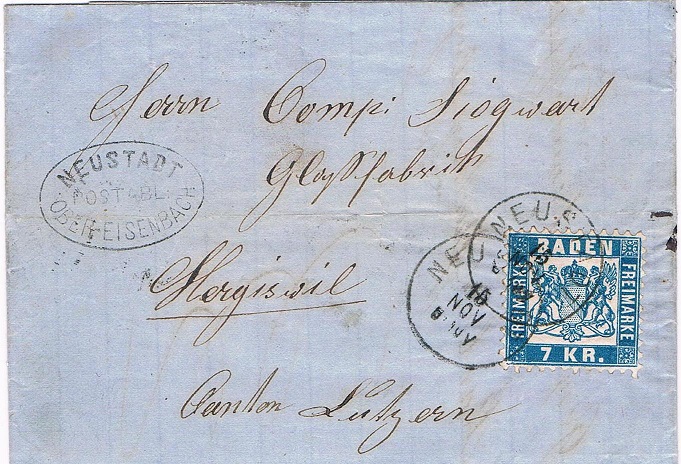 Herrn Compi Siogwart
Glasfabrik
Hergiswil
Canton Lutzern
NEUSTADT
POSTABL.
OBER-EISENBACH
NEUS
NEU
10
NOV
BADEN
FREIMARKE
FREIMARKE
7 KR.